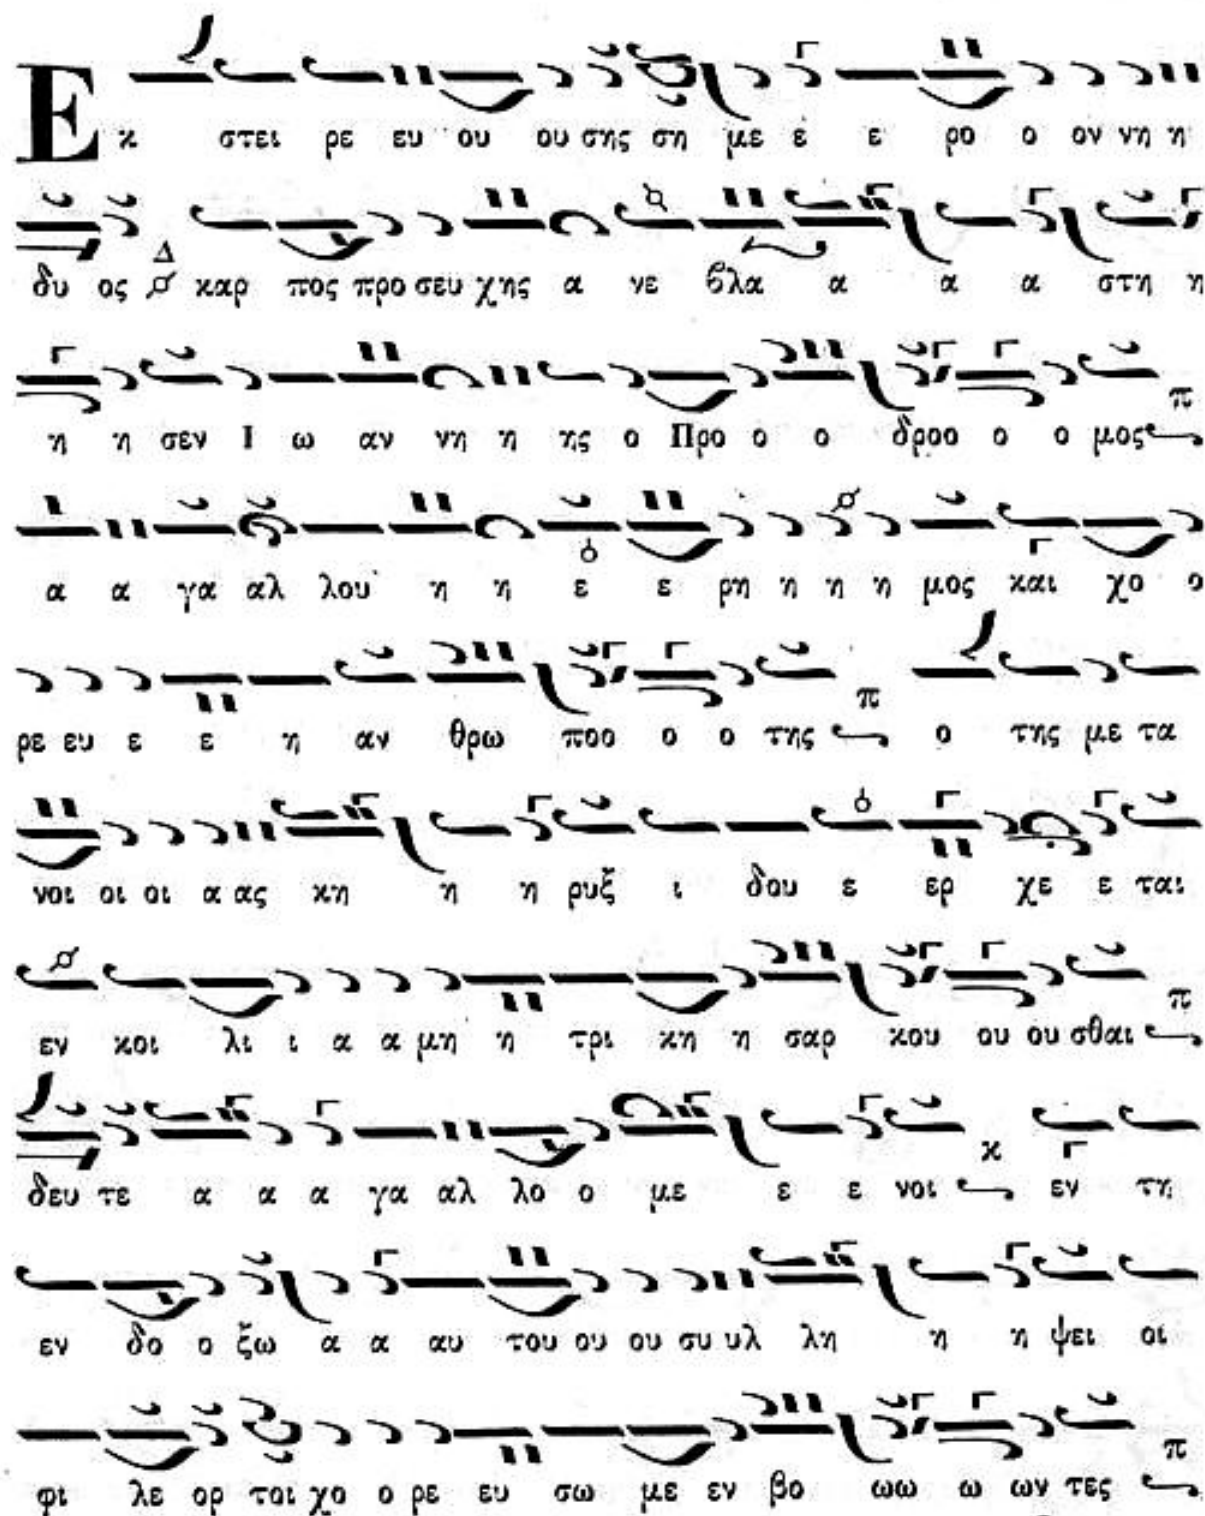 Εκ στει ρε ευ ου ου σης ση με ε ε ρο ο ον νη η
δυ ος Δ καρ πος προ σευ χης α νε βλα α α α στη η
η η σεν Ι ω αν νη η ης ο Προ ο ο δροο ο ο μος π
α α γα αλ λου η η ε ε ρη η η η μος και χο ο
ρε ευ ε ε η αν θρω ποο ο ο της π ο της με τα
νοι οι οι α ας κη η η ρυξ ι δου ε ερ χε ε ται
εν κοι λι ι α α μη η τρι κη η σαρ κου ου ου σθαι π
δευ τε α α α γα αλ λο ο με ε ε νοι κ εν τη
εν δο ο ξω α α αυ του ου ου συ υλ λη η η ψει οι
φι λε ορ τοι χο ο ρε ευ σω με εν βο ωω ω ων τες π